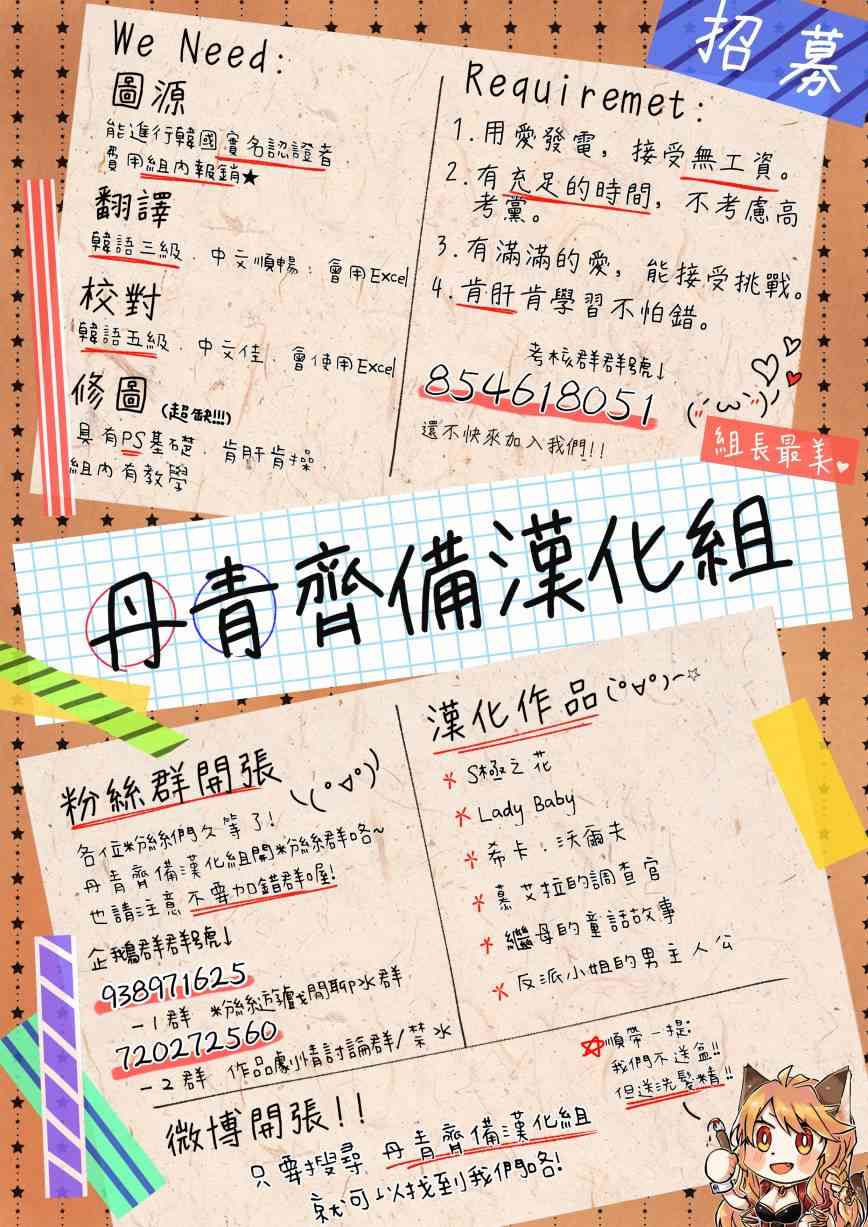 招募
We Need:
圖源
能進行韓國實名認證者.
費用組內報銷★
翻譯
韓語三級、中文順暢、會用Excel
校對
韓語五級、中文佳、會使用Excel
修圖(超缺!!!)
具有PS基礎、肯肝肯操、
組內有教學
Requiremet:
1.用愛發電，接受無工資。
2.有充足的時間，不考慮高
考黨。
3.有滿滿的愛，能接受挑戰。
4.肯肝肯學習不怕錯。
考核群群號↓
854618051
還不快來加入我們!!
組長最美♥
丹青齊備漢化組
粉絲群開張\(°∀°)/
各位粉絲們久等了!
丹青齊備漢化組開粉絲群咯~
也請注意不要加錯群喔!
企鵝群群號↓
938971625
-1群 粉絲遊戲閒聊水群
720272560
-2群 作品劇情討論群/禁水
漢化作品(°∀°)~☆
*S極之花
*Lady Baby
*希卡.沃爾夫
*慕艾拉的調查官
*繼母的童話故事
*反派小姐的男主人公
☆順帶一提:
我們不送盆!!
但送洗髮精!!
微博開張!!
只要搜尋 丹青齊備漢化組
就可以找到我們咯!